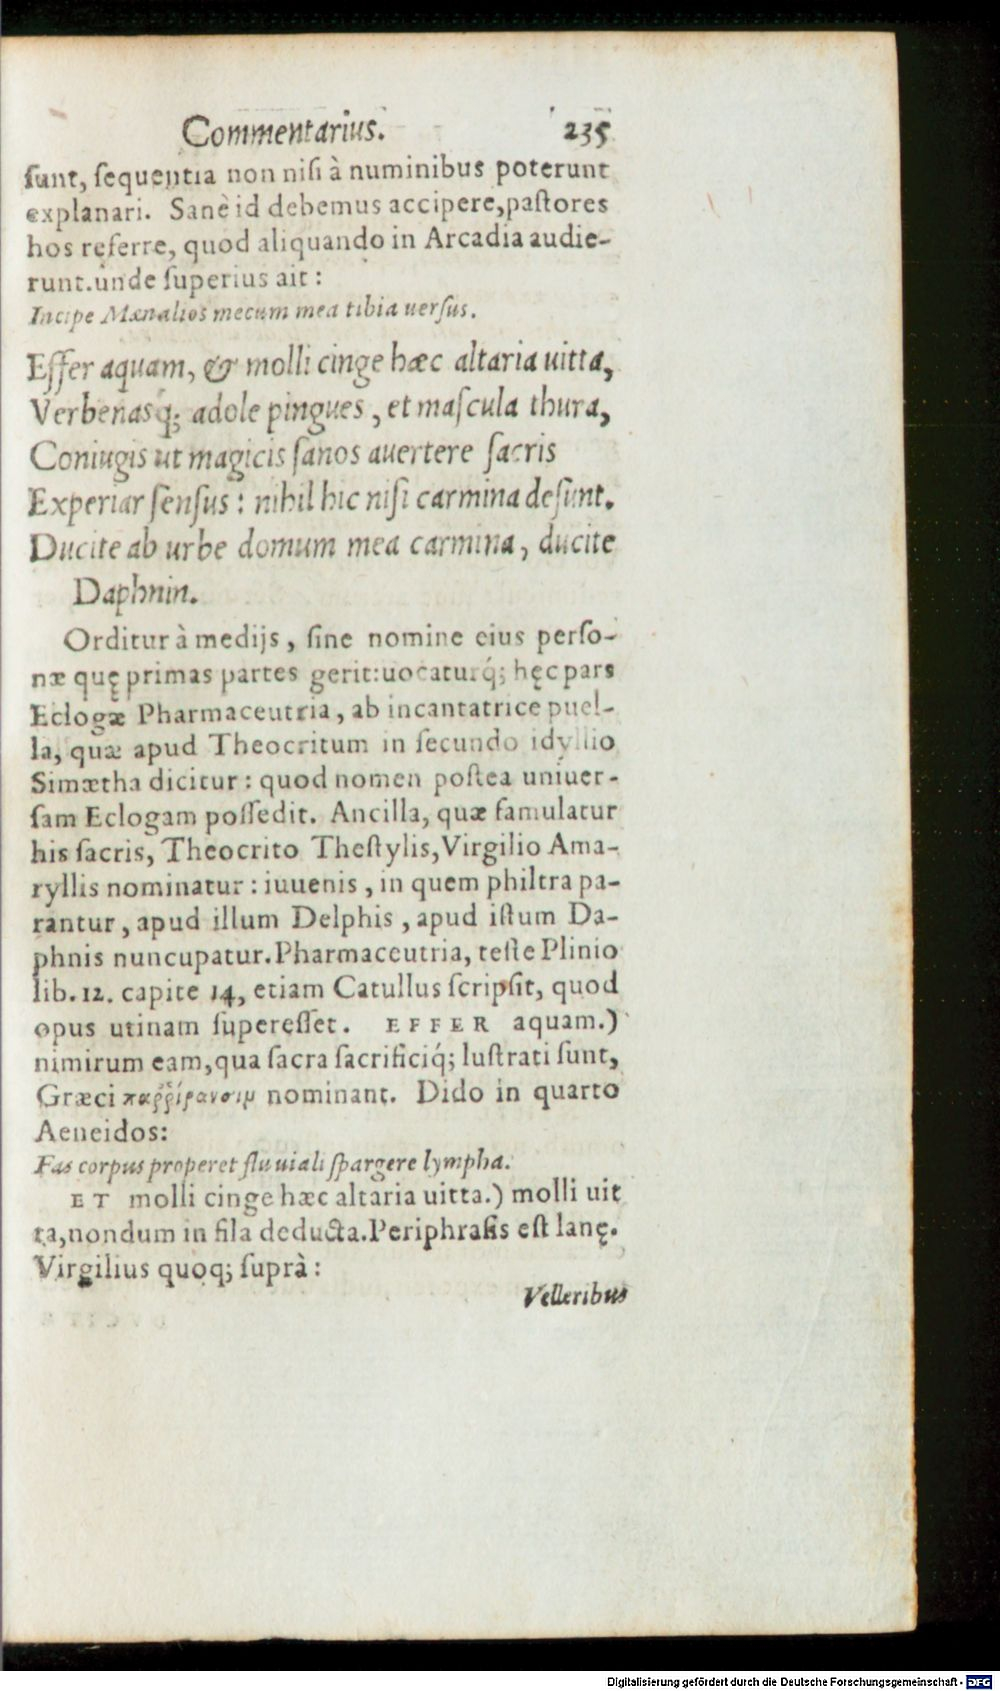 Commentarius. 235
ſunt, ſequentia non niſi à numinibus poterunt
explanari. Sanè id debemus accipere, paſtores
hos referre, quod aliquando in Arcadia audie-
runt. unde ſuperius ait:
Incipe Mænalios mecum mea tibia uerſus.
Effer aquam, & molli cinge hæc altaria uitta,
Verbenasq́; adole pingues, et maſcula thura,
Coniugis ut magicis ſanos auertere ſacris
Experiar ſenſus: nihil hic niſi carmina deſunt.
Ducite ab urbe domum mea carmina, ducite
Daphnin.
Orditur à medijs, ſine nomine eius perſo-
næ quę primas partes gerit: uocaturq́; hęc pars
Eclogæ Pharmaceutria, ab incantatrice puel-
la, quæ apud Theocritum in ſecundo idyllio
Simætha dicitur: quod nomen poſtea uniuer-
ſam Eclogam poſſedit. Ancilla, quæ famulatur
his ſacris, Theocrito Theſtylis, Virgilio Ama-
ryllis nominatur: iuuenis, in quem philtra pa-
rantur, apud illum Delphis, apud iſtum Da-
phnis nuncupatur. Pharmaceutria, teſte Plinio
lib. 12. capite 14, etiam Catullus ſcripſit, quod
opus utinam ſupereſſet. EFFER aquam.)
nimirum eam, qua ſacra ſacrificiq́; luſtrati ſunt,
Græci nominant. Dido in quarto
Aeneidos:
Fas corpus properet fluuiali ſpargere lympha.
ET molli cinge hæc altaria uitta.) molli uit
ta, nondum in fila deducta. Periphraſis eſt lanę.
Virgilius quoq; ſuprà:
Velleribus
Digitalisierung gefördert durch die Deutsche Forschungsgemeinschaft - DFG